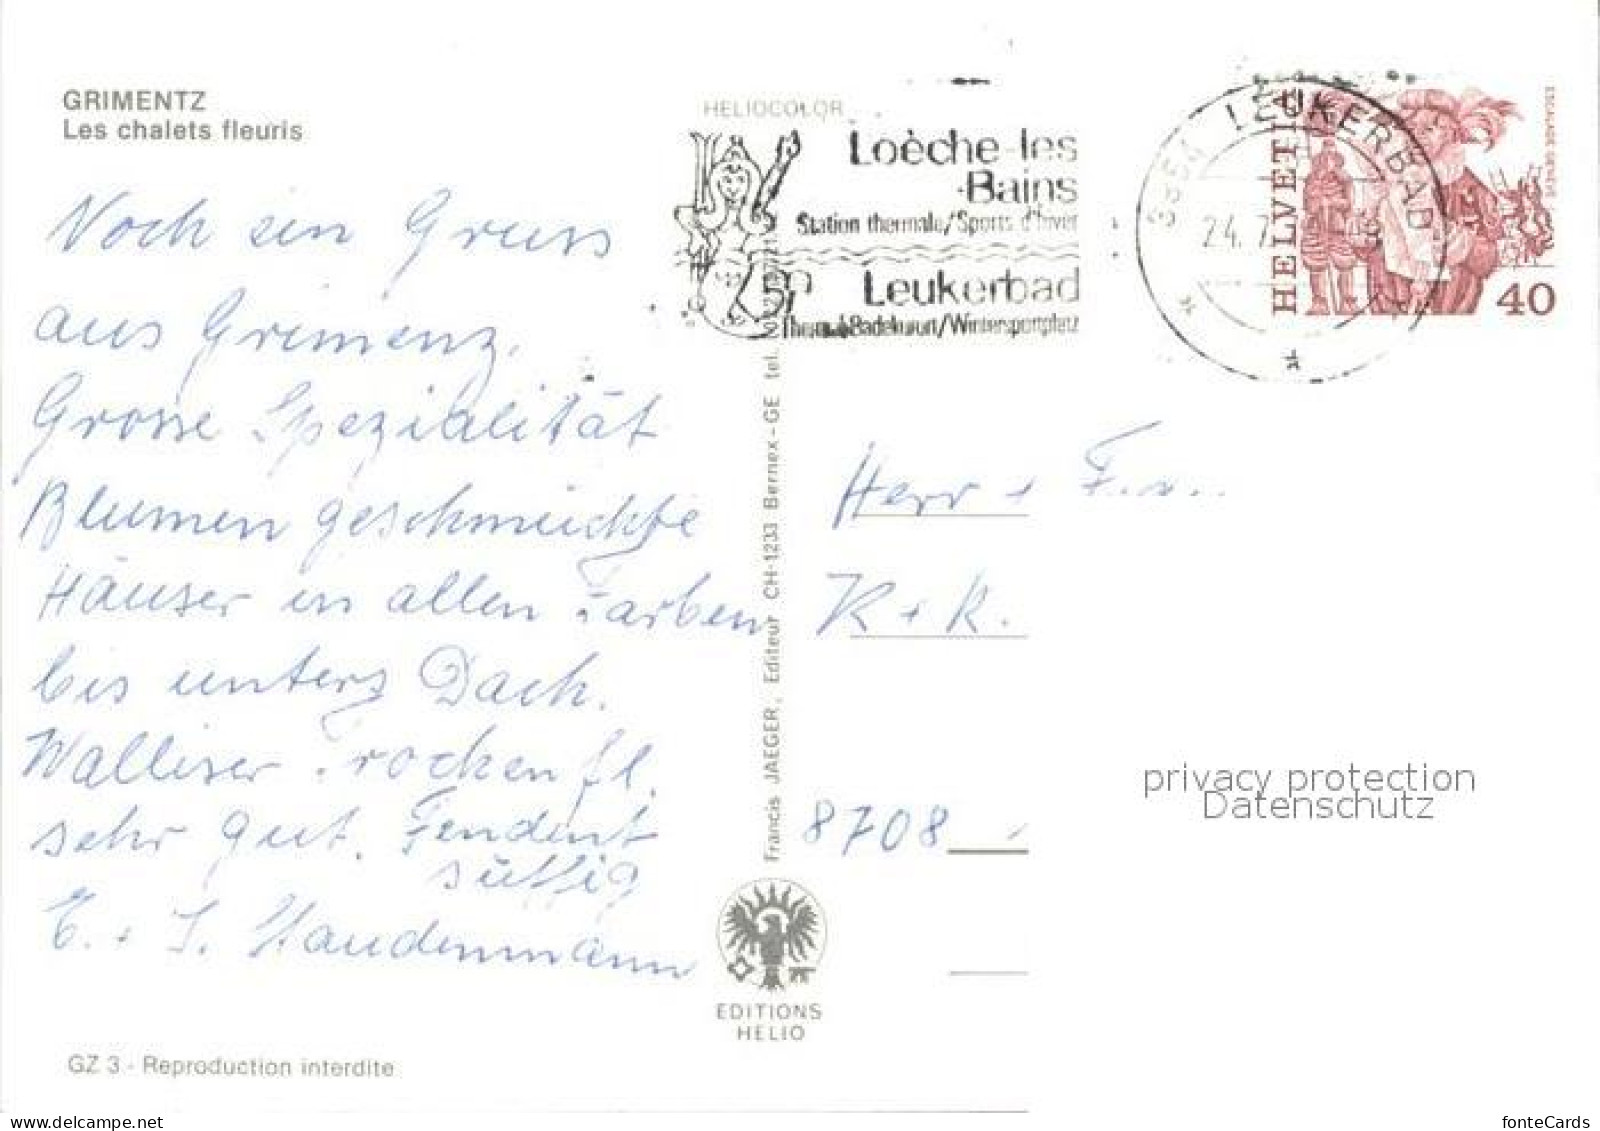 GRIMENTZ
Les chalets fleuris
Noch ein Gruss
aus Grimenz.
Grosse Spezialität
Blumen geschmückte
Häuser in allen Farben
bis unters Dach.
Walliser Trockenfl.
sehr gut. Fendent
süffig
E. + I. Staudenmann
GZ 3 - Reproduction interdite
HELIOCOLOR
Loèche-les
-Bains
Station thermale/Sports d'hiver
Leukerbad
Therm. Badekurort/Wintersportplatz
Francis JAEGER, Editeur CH-1233 Bernex-GE tel.
EDITIONS
HELIO
3954 LEUKERBAD
24. 7
HELVETIA
ESCALADE GENEVE
40
Herr + F
K + K.
8708
privacy protection
Datenschutz
www.delcampe.net
fonteCards